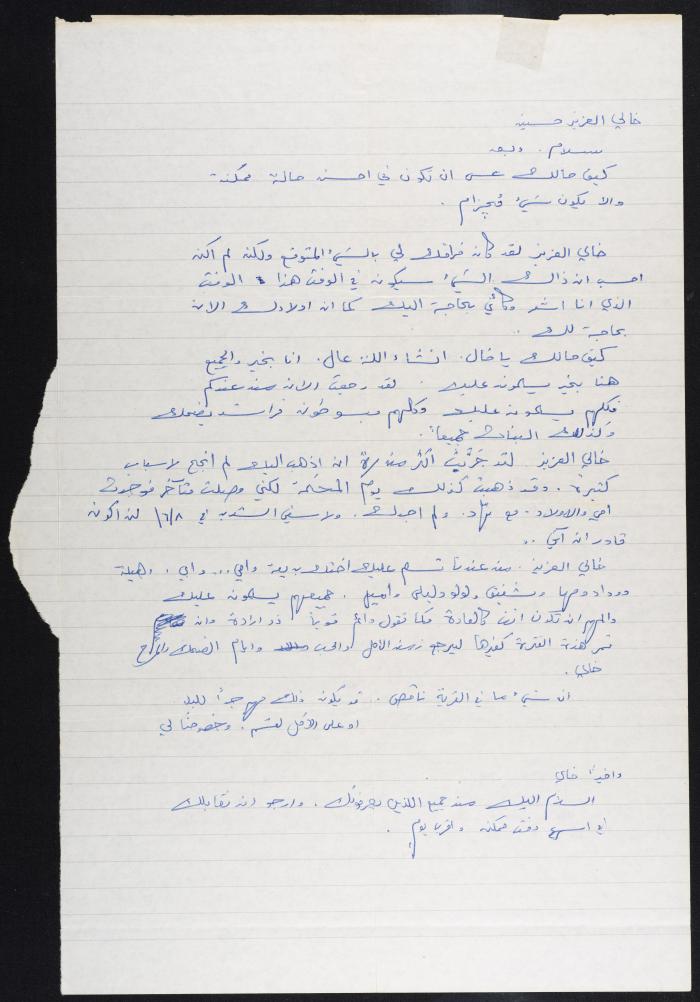 خالي العزيز حسين
سلام. وبعد
كيف حالك عسى ان تكون في احسن حالة ممكنة
والا يكون شيء
خالي العزيز لقد كان فراقك لي بالشيء المتوقع ولكن لم اكن
احسب ان ذاك الشيء سيكون في الوقت هذا الوقت
الذي انا اشعر وكأني بحاجة اليك كما ان اولادك الان
بحاجة لك.
كيف حالك يا خال. انشاء الله عال. انا بخير والجميع
هنا بخير يسلمون عليك. لقد رجعت الان من عندكم
فكلهم يسلمون عليك وكلهم مبسوطون فراشد يضحك
وكذلك البنات جميعاً.
خالي العزيز. لقد جربت اكثر من مرة ان اذهب اليك لم انجح لاسباب
كثيرة. وقد ذهبت كذلك يوم المحكمة لكني وصلت متأخر فوجدت
امي والاولاد. مع ولم اجدك. ولاسفي الشديد في ١٦/٨ لن اكون
قادر ان آتي..
خالي العزيز. من عندنا تسلم عليك اختك بديعة وامي... وابي. وهيلة
ووداد ومها وشفيق ولولو وليلى واميل. جميعهم يسلمون عليك
والمهم ان تكون انت كالعادة فكما تقول دائماً قوياً ذو ارادة وان
تمر هذه الفترة كغيرها ليرجع زمن الأمل والحب وايام الضحك والمزاح
خالي.
ان شيء ما في القرية ناقص.. قد يكون ذلك مهم جداً للبلد
او على الاقل لقسم. وخصوصاً لي
واخيراً خالي
السلام اليك من جميع اللذين يعرفونك. وارجو ان نقابلك
في اسرع وقت ممكن واقرب يوم.